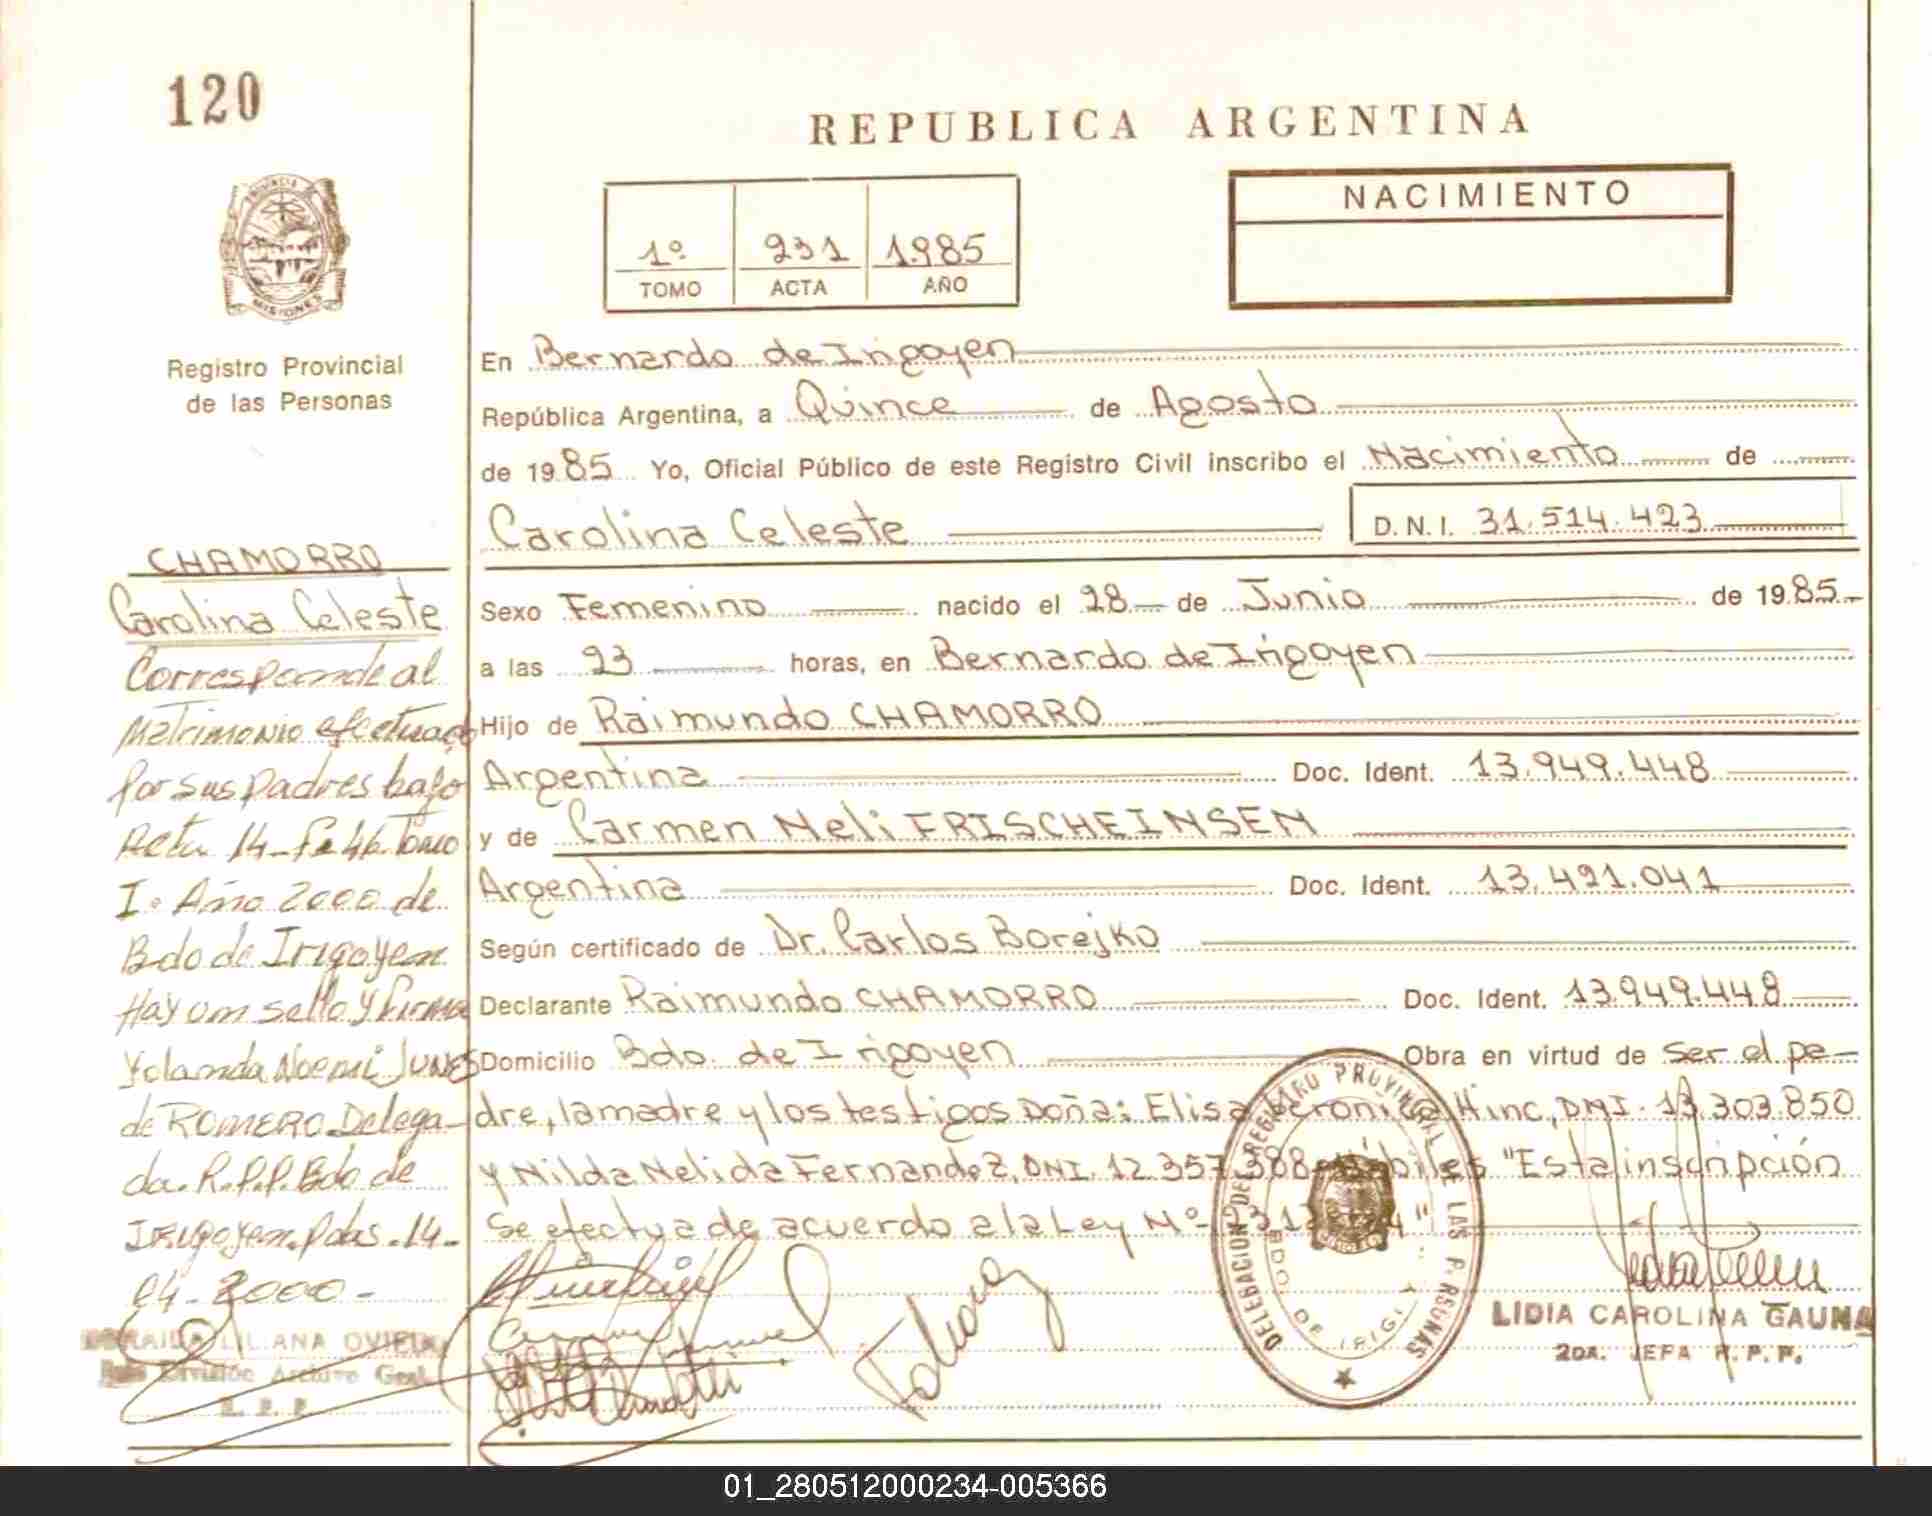 120
REPUBLICA ARGENTINA
NACIMIENTO
1º 231 1985
TOMO ACTA AÑO
PROVINCIA DE
MISIONES
Registro Provincial
de las Personas
En Bernardo de Irigoyen
República Argentina, a Quince de Agosto
de 1985 Yo, Oficial Público de este Registro Civil inscribo el Nacimiento de
Carolina Celeste D.N.I. 31.514.423
Sexo Femenino nacido el 28 de Junio de 1985
a las 23 horas, en Bernardo de Irigoyen
Hijo de Raimundo CHAMORRO
Argentina Doc. Ident. 13.949.448
y de Carmen Neli FRISCHEINSEN
Argentina Doc. Ident. 13.491.041
Según certificado de Dr. Carlos Borejko
Declarante Raimundo CHAMORRO Doc. Ident. 13.949.448
Domicilio Bdo. de Irigoyen Obra en virtud de Ser el pa-
dre, la madre y los testigos Doña: Elisa Veronica Hinc, DNI. 13.303.850
y Nilda Nelida Fernandez, DNI. 12.357.388 "Esta inscripción
Se efectua de acuerdo a la Ley Nº
CHAMORRO
Carolina Celeste
Corresponde al
Matrimonio efectuado
por sus padres bajo
Acta 14-Fº 46. Tomo
Iº Año 2000 de
Bdo de Irigoyen
Hay un sello y firma
Yolanda Noemi JUNES
de ROMERO Delega-
da. R.P.P. Bdo de
Irigoyen. Pdas. 14-
04-2000-
LILIANA OVIEDO
División Archivo Gral.
R. P. P.
DELEGACION DEL REGISTRO PROVINCIAL DE LAS PERSONAS
BDO. DE IRIGOYEN
LIDIA CAROLINA GAUNA
2DA. JEFA R. P. P.
01_280512000234-005366